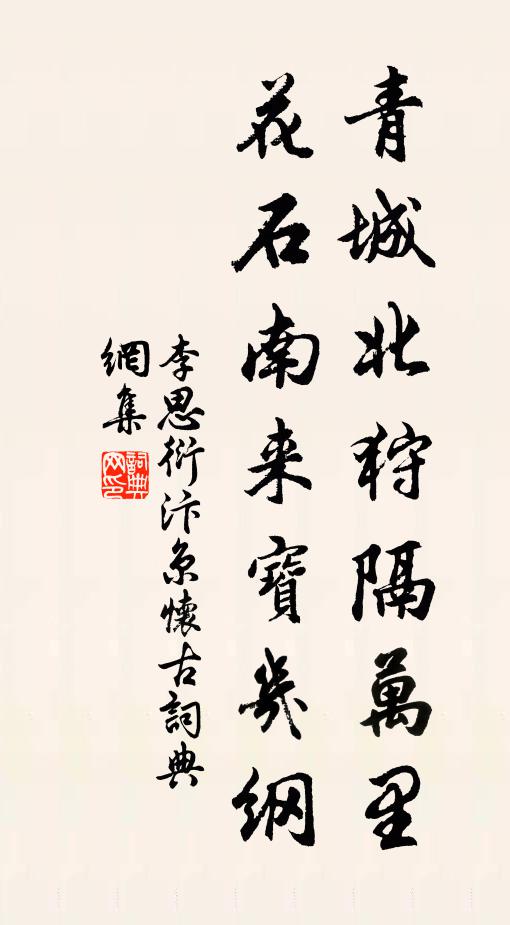 青城北狩隔萬里
花石南来寶幾綱
李思衍汴京懷古詞典
網集
詞典
网印